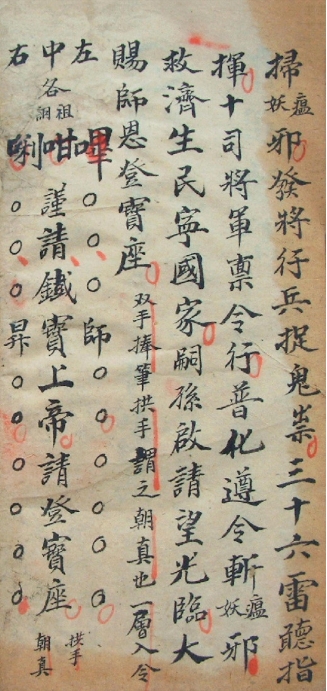 掃瘟妖邪發將行兵捉鬼祟三十六雷聽指
揮十司將軍禀令行普化遵令斬瘟妖邪
救濟生民寧國家嗣孫啟請望光臨大
賜師恩登寶座双手捧筆拱手謂之朝真也一層入令
左嗶○○○師○○○○○○
中各祖咁謹請鐵寶上帝請登寶座拱手朝真
右唎○○○昇○○○○○○